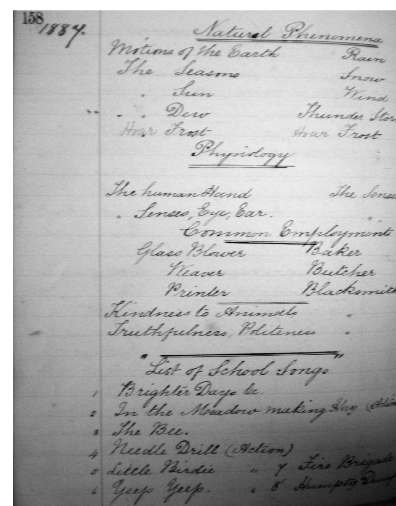 158
1884.
Natural Phenomena
Motions of the Earth Rain
The Seasons Snow
" Sun Wind
" Dew Thunder Stor
Hoar Frost Hoar Frost
Physiology
The human Hand The Sense
" Senses, Eye, Ear. "
Common Employment
Glass Blower Baker
Weaver Butcher
Printer Blacksmith
Kindness to Animals
Truthfulness, Politeness "
"List of School Songs"
1 Brighter Days &c.
2 In the Meadow making Hay (Action
3 The Bee.
4 Needle Drill (Action)
5 Little Birdie " 7 Fire Brigade
6 Yeep Yeep. " 8 Humpty Dump